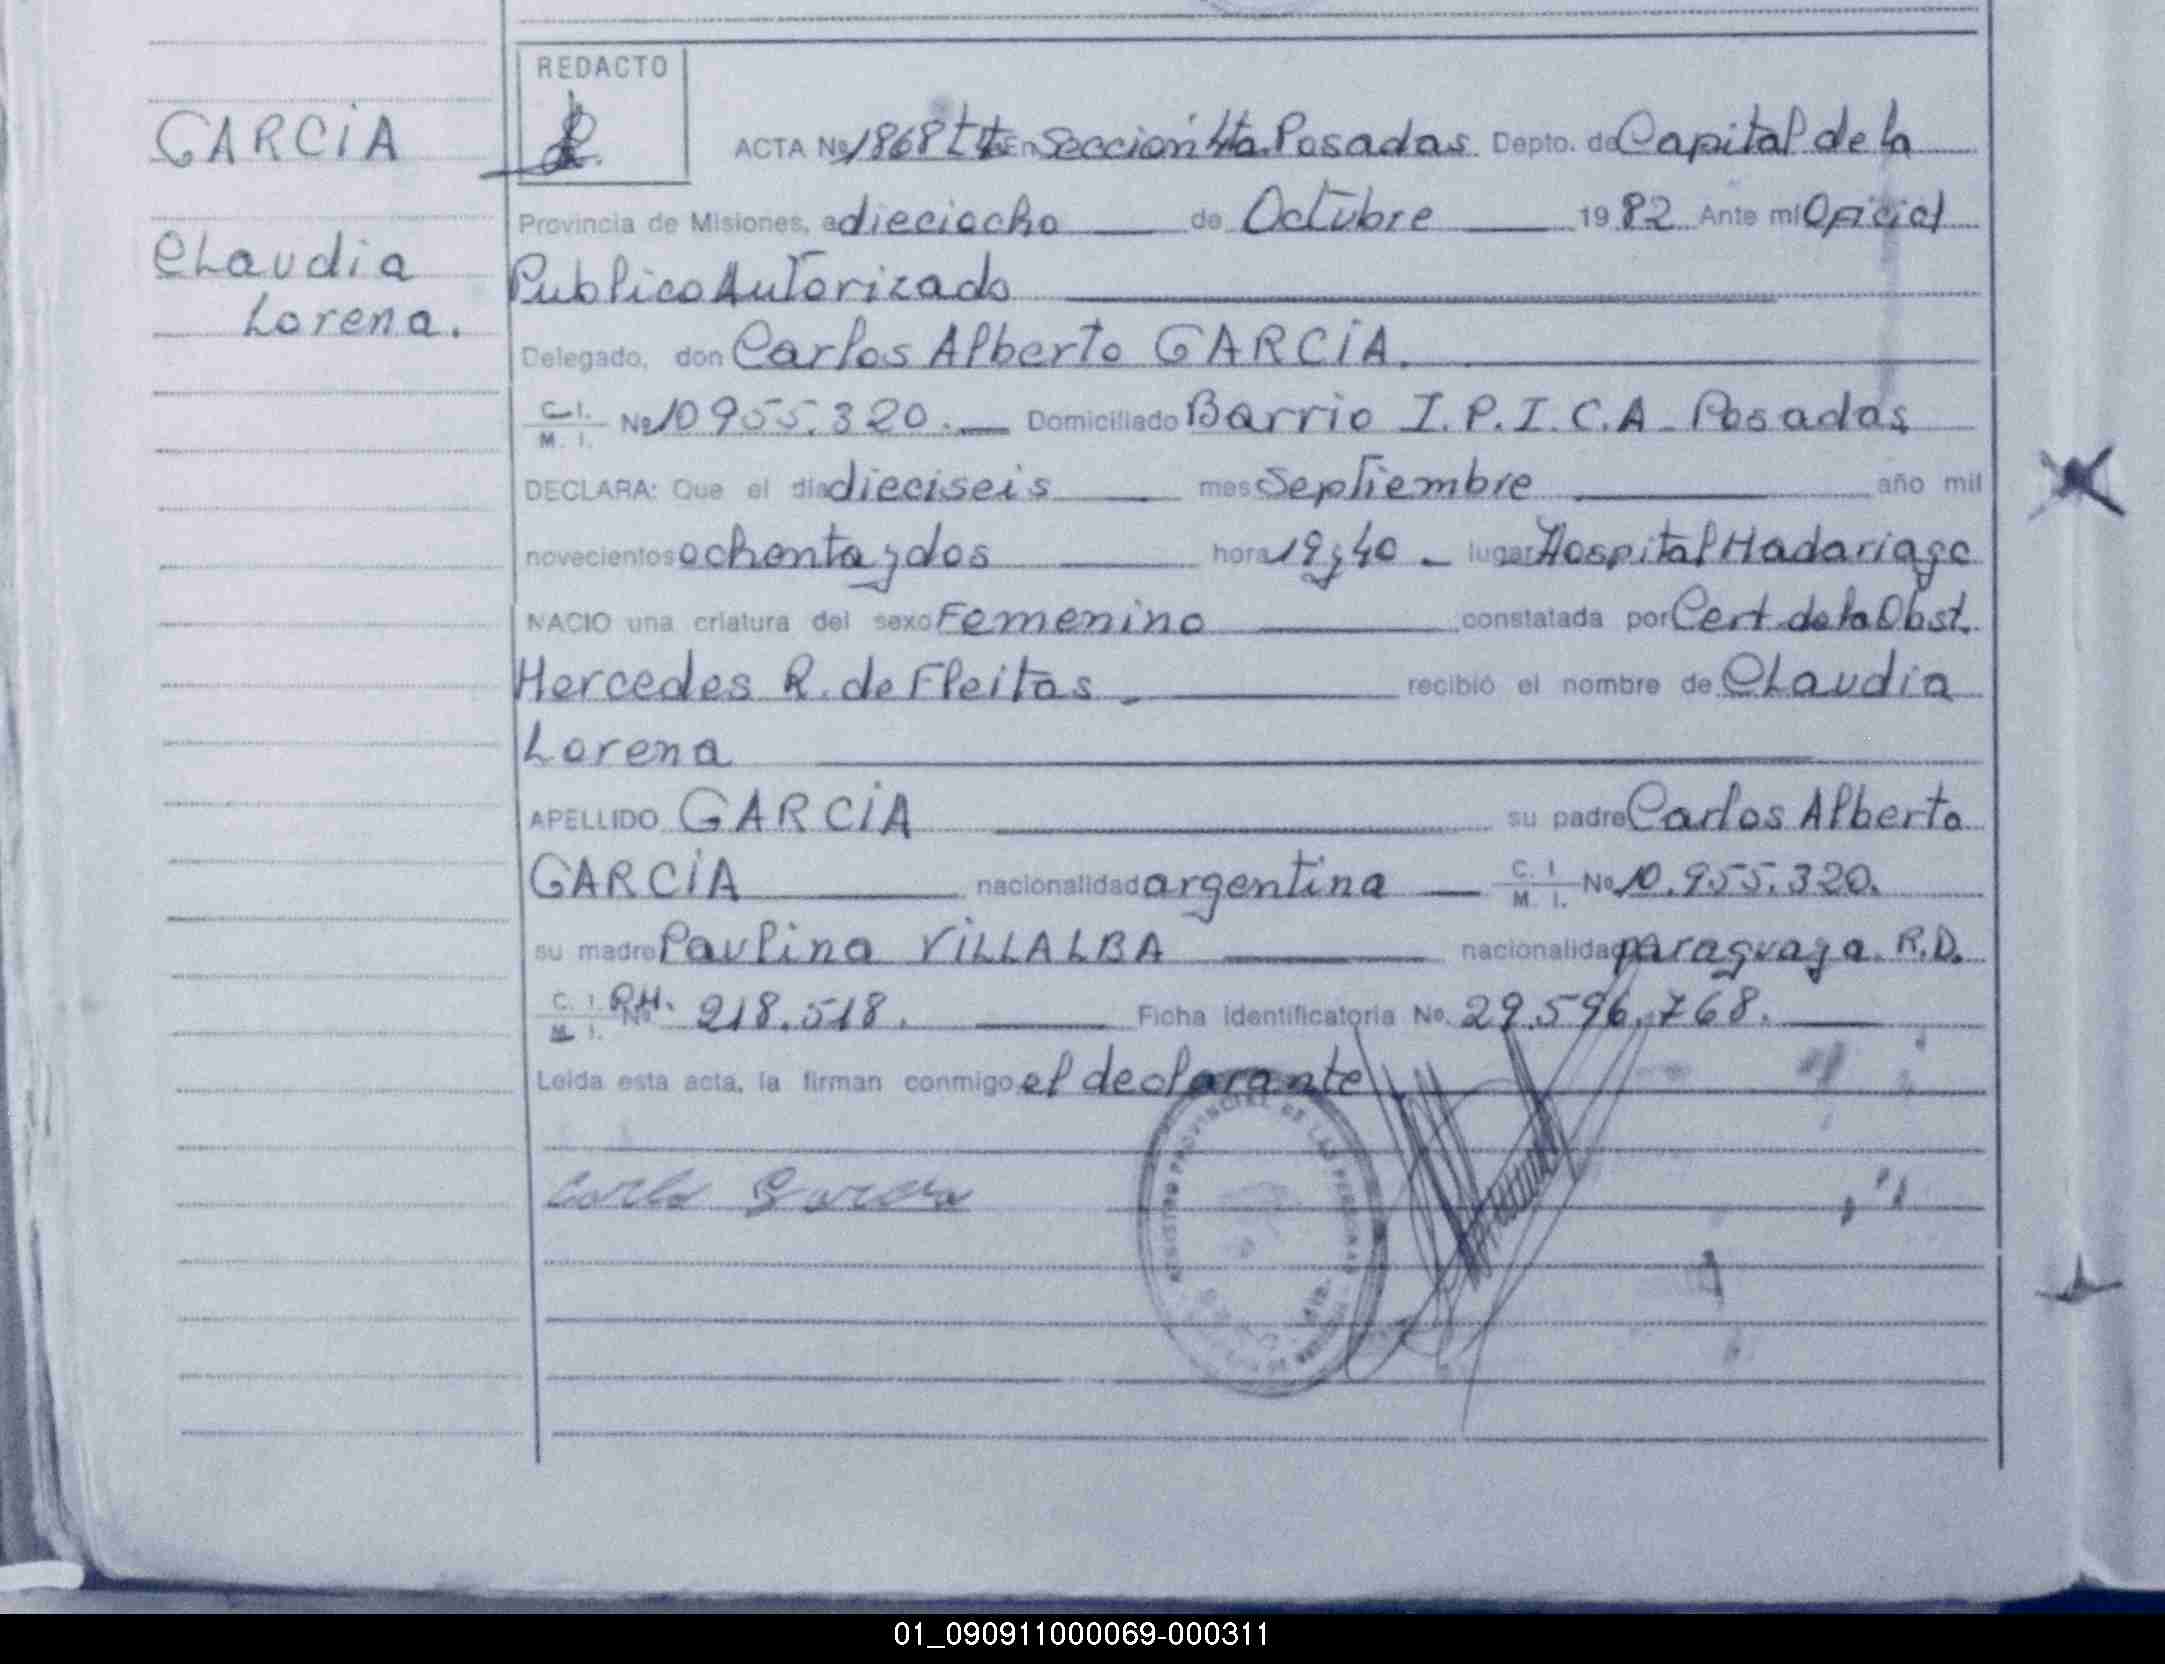 REDACTO
GARCIA
Claudia
Lorena.
ACTA Nº 1868 tt En Sección 4ta. Posadas. Depto. de Capital de la
Provincia de Misiones, a dieciocho de Octubre 1982 Ante mi Oficial
Publico Autorizado
Delegado, don Carlos Alberto GARCIA.
C. I.
M. I. Nº 10955.320. Domiciliado Barrio I.P.I.C.A - Posadas
DECLARA: Que el día dieciseis mes Septiembre año mil
novecientos ochenta y dos hora 19 y 40 lugar Hospital Madariaga
NACIO una criatura del sexo Femenino constatada por Cert. de la Obst.
Mercedes R. de Fleitas recibió el nombre de Claudia
Lorena
APELLIDO GARCIA su padre Carlos Alberto
GARCIA nacionalidad argentina C. I.
M. I. Nº 10.955.320.
su madre Paulina VILLALBA nacionalidad paraguaya. R.D.
C. I.
M. I. Nº 218.518. Ficha identificatoria Nº. 29.596.768.
Leída esta acta, la firman conmigo el declarante
REGISTRO PROVINCIAL DE LAS PERSONAS
01_090911000069-000311